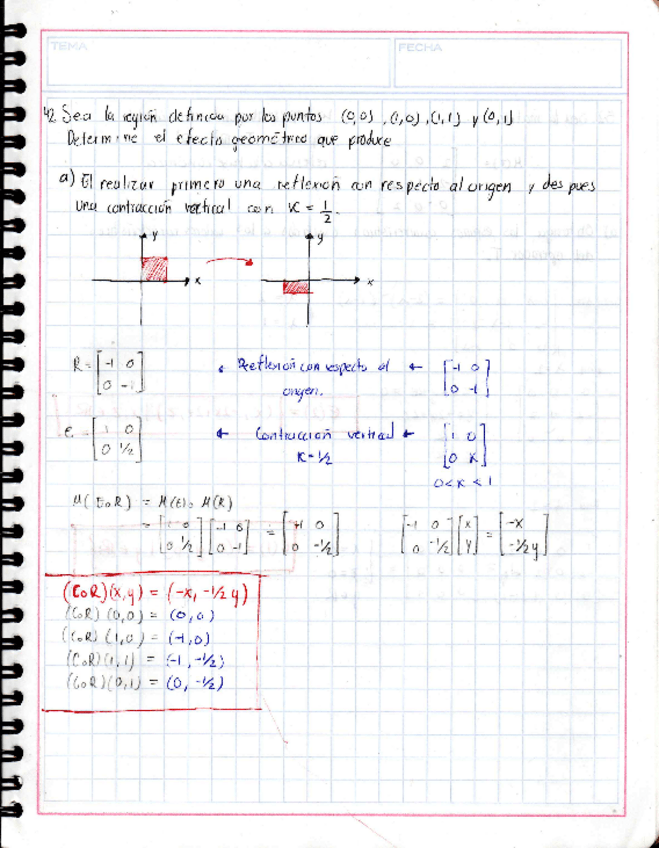 TEMA
FECHA
42. Sea la región definida por los puntos (0,0), (1,0), (1,1) y (0,1)
Determine el efecto geométrico que produce
a) El realizar primero una reflexión con respecto al origen y despues
una contracción vertical con K = 1/2.
y
x
y
x
R = [-1 0; 0 -1] ← Reflexión con respecto al origen. ← [-1 0; 0 -1]
C = [1 0; 0 1/2] ← Contracción vertical K=1/2 ← [1 0; 0 K]
0<K<1
M(CoR) = M(C)o M(R)
= [1 0; 0 1/2] [-1 0; 0 -1] = [-1 0; 0 -1/2] [-1 0; 0 -1/2] [x; y] = [-x; -1/2 y]
(CoR)(x,y) = (-x, -1/2 y)
(CoR)(0,0) = (0,0)
(CoR)(1,0) = (-1,0)
(CoR)(1,1) = (-1,-1/2)
(CoR)(0,1) = (0,-1/2)